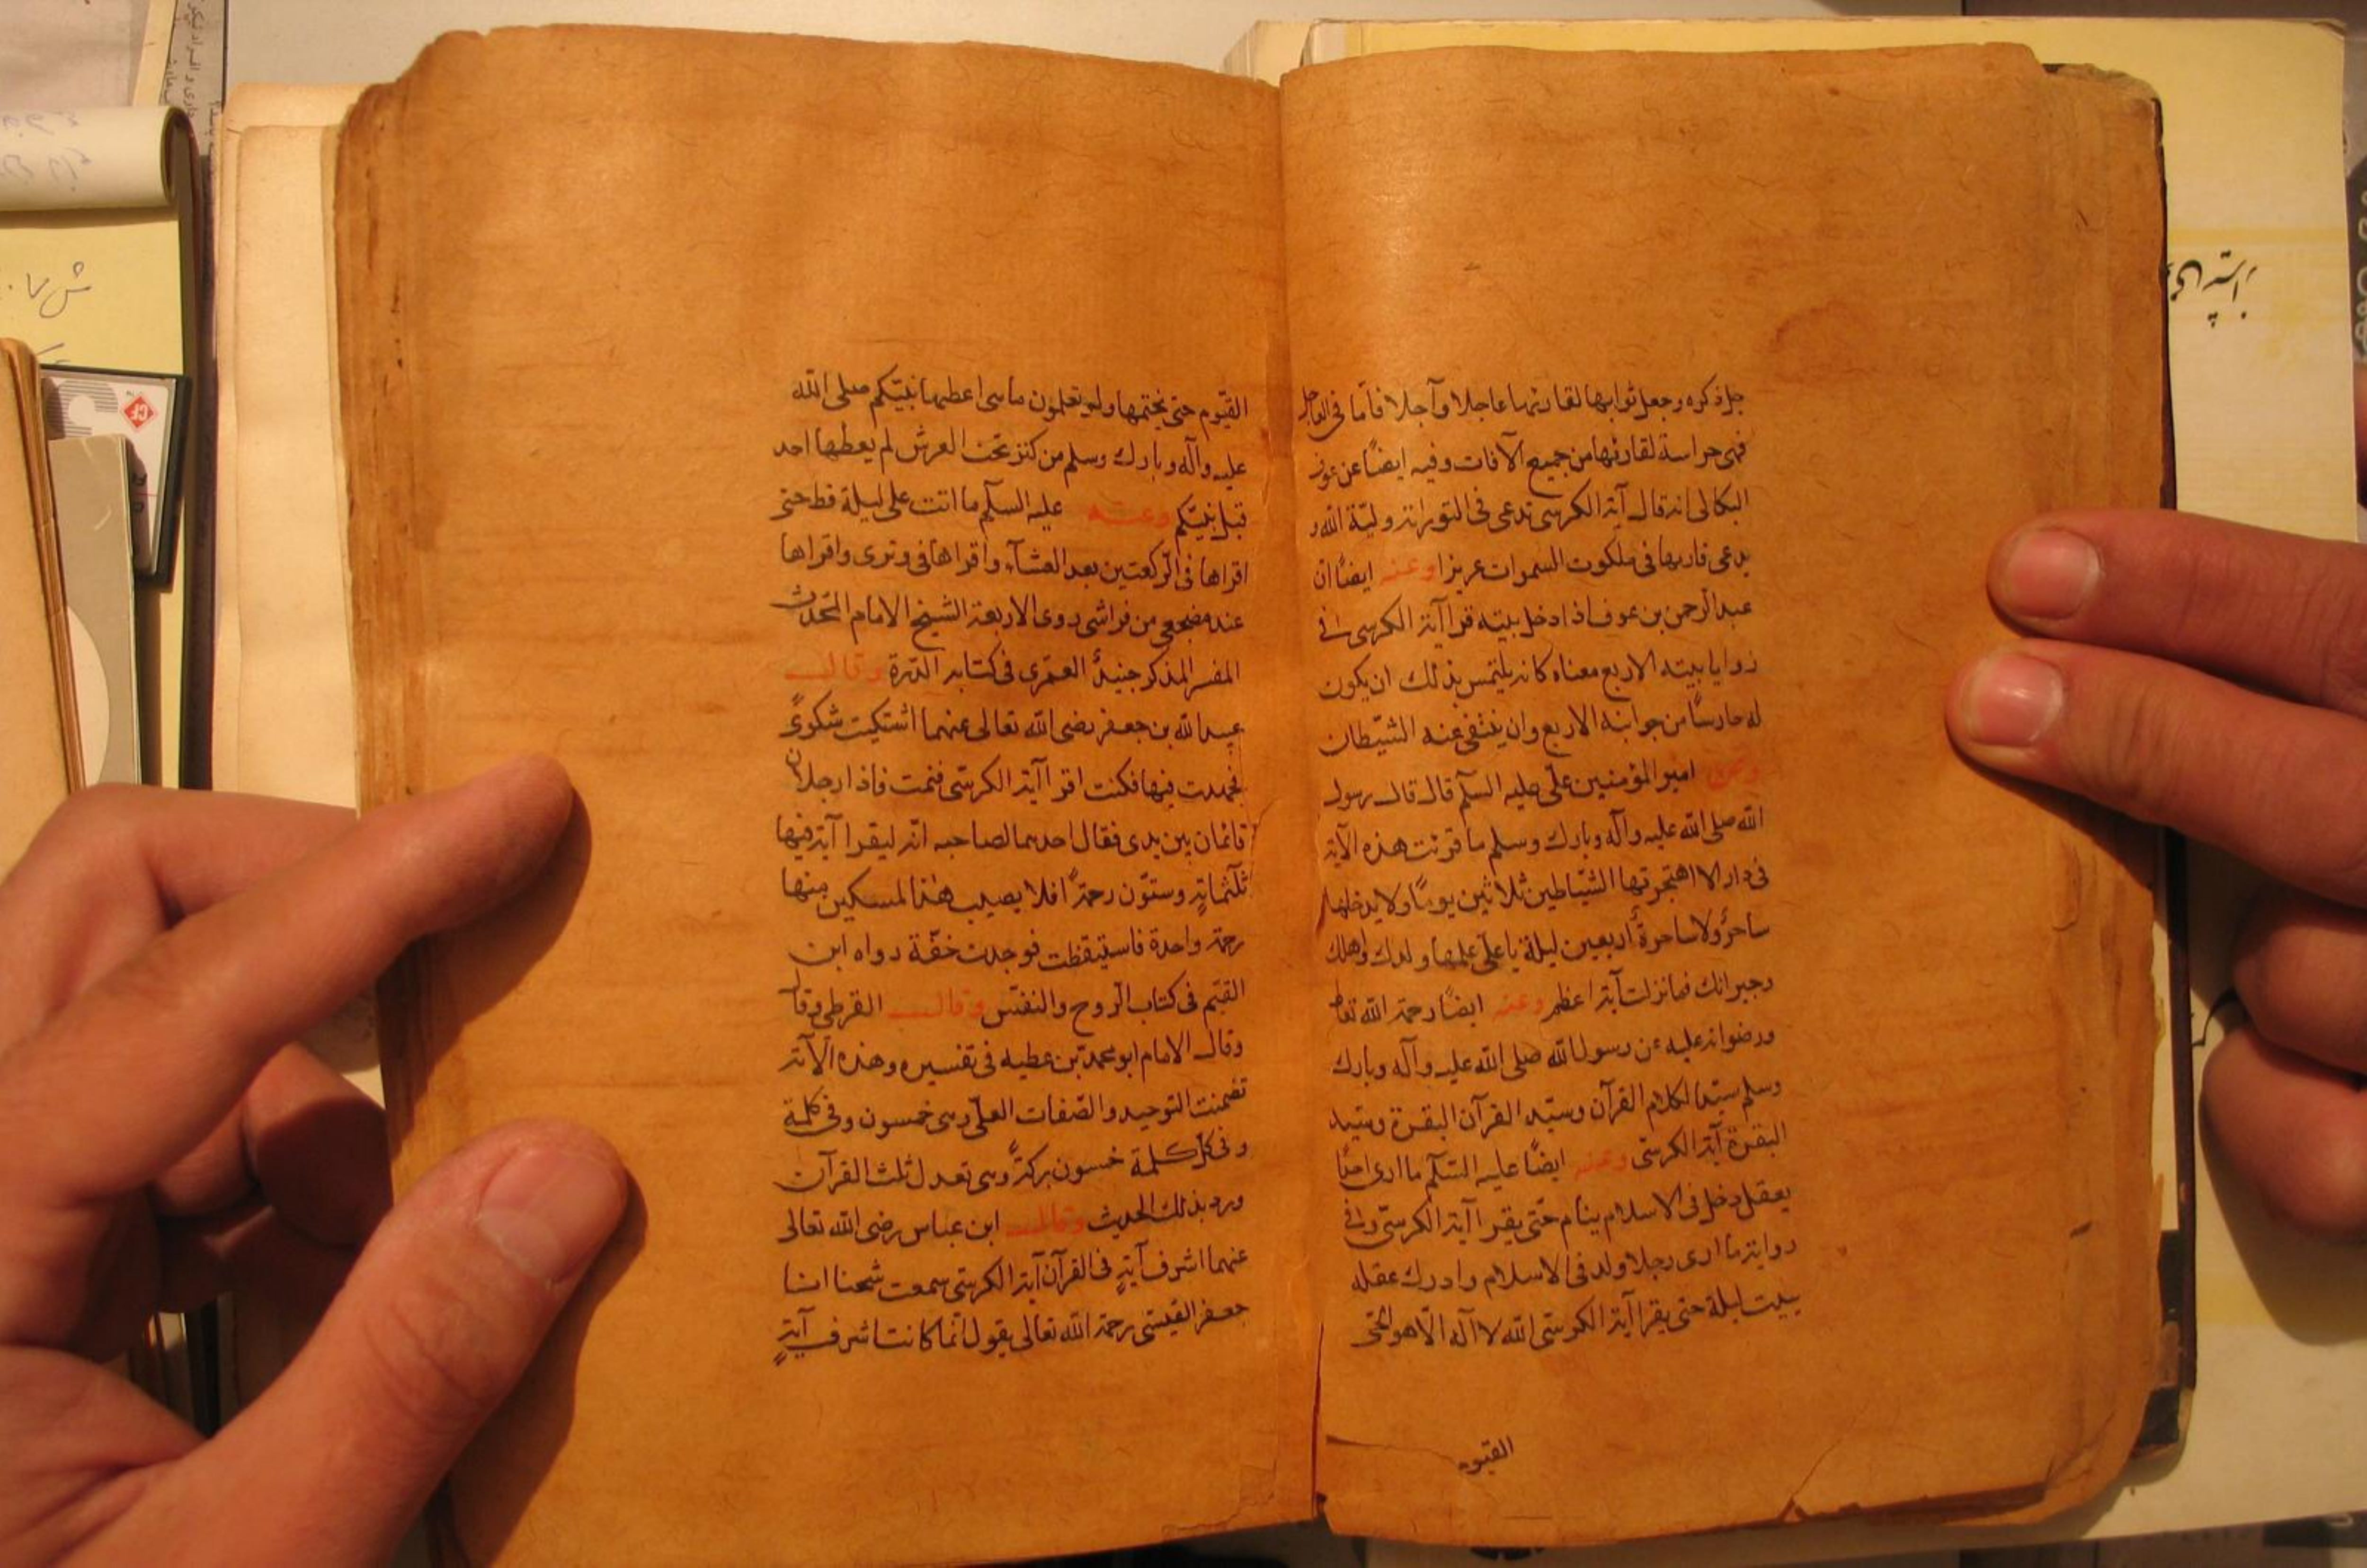 جل ذكره وجعل ثوابها لقارئها عاجلا وآجلا فأما فى العاجل
فهى حراسة لقارئها من جميع الآفات وفيه ايضًا عن
البكالى انه قال آية الكرسى تدعى فى التوراة وليّة الله و
يدعى قاريها فى ملكوت السموات عزيزا وعنه ايضًا ان
عبد الرحمن بن عوف اذا دخل بيته قرا آية الكرسى فى
زوايا بيته الاربع معناه كانه يلتمس بذلك ان يكون
له حارسًا من جوانبه الاربع وان ينفى عنه الشيّطان
وعن امير المؤمنين علّى عليه السلم قال قال رسول
الله صلى الله عليه وآله وبارك وسلم ما قرئت هذه الآية
فى دار الا اهتجرتها الشيّاطين ثلاثين يومًا ولا يدخلها
ساحرٌ ولا ساحرةٌ اربعين ليلة يا علّى علمها ولدك واهلك
وجيرانك فما نزلت آية اعظم وعنه ايضًا رحمة الله تعا
ورضوانه عليه عن رسول الله صلى الله عليه وآله وبارك
وسلم سيّد الكلام القرآن وسيّد القرآن البقرة وسيّد
البقرة آية الكرسّى وعنه ايضًا عليه السّلم ما ارى احدًا
يعقل دخل فى الاسلام ينام حتّى يقرا آية الكرسّى وفى
رواية ما ارى رجلا ولد فى الاسلام وادرك عقله
يبيت ليلة حتى يقرا آية الكرسّى الله لا آله الّا هو الحّى
القيّوم
القيّوم حتى يختمها ولو تعلمون ما هى اعطيها نبيّكم صلى الله
عليه وآله وبارك وسلم من كنز تحت العرش لم يعطها احد
قبل نبيّكم وعنه عليه السلم ما اتت على ليلة قط حتى
اقراها فى الركعتين بعد العشآء واقراها فى وترى واقراها
عند مضجعى من فراشى روى الاربعة الشيخ الامام المحدث
المفسر المذكر جنيدٌ العمّرى فى كتابه الدّرة وقال
عبد الله بن جعفر رضى الله تعالى عنهما اشتكيت شكوىً
فجهدت فيها فكنت اقرا آية الكرسّى فنمت فاذا رجلان
قائمان بين يدى فقال احدهما لصاحبه انّه ليقرا آية فيها
ثلثمايةٍ وستوّن رحمةً افلا يصيب هذا المسكين منها
رحمة واحدة فاستيقظت فوجدت خفّة رواه ابن
القيّم فى كتاب الروح والنفّس وقال القرطبى وقا
وقال الامام ابو محمد بن عطيه فى تفسيره وهذه الآية
تضمنت التوحيد والصّفات العلّى وهى خمسون وفى كلمة
وفى كل كلمة خمسون بركةً وهى تعدل ثلث القرآن
ورد بذلك الحديث وقال ابن عباس رضى الله تعالى
عنهما اشرف آيةٍ فى القرآن آية الكرسّى سمعت شيخنا
جعفر رحمة الله تعالى يقول انما كانت اشرف آيةٍ